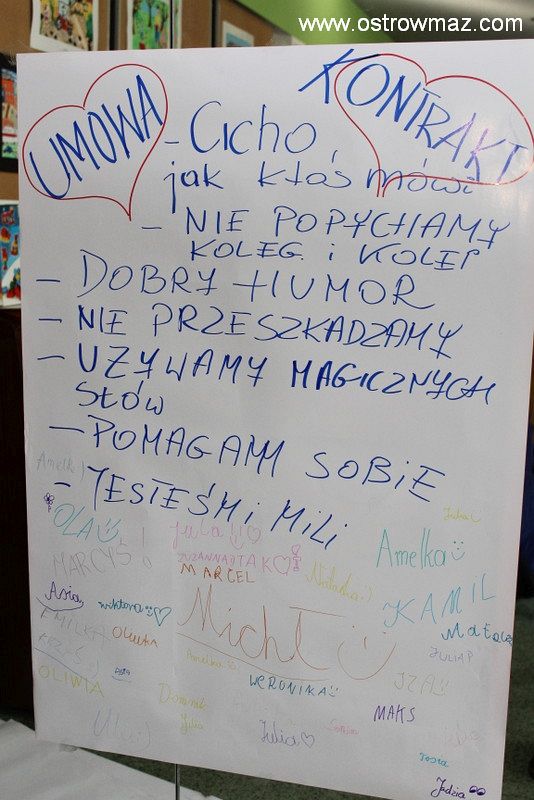 www.ostrowmaz.com
UMOWA
KONTRAKT
- CICHO,
jak ktoś mówi
- NIE POPYCHAMY
KOLEG. i KOLEP
- DOBRY HUMOR
- NIE PRZESZKADZAMY
- UŻYWAMY MAGICZNYCH
SŁÓW
- POMAGAMY SOBIE
- JESTEŚMI MILI
Amelka
OLA
Jula
Julia
MARCYŚ!
ZUZANNA
MARCEL
Natalka :)
Amelka
Asia
wiktoria
KAMIL
EMILKA
OLEŃKA
MichŁ
JULIA P
Amelka
OLIWIA
ASIA
WERONIKA
IZA
Dominik
Julia
MAKS
Ula
Julia
Tosia
Jadzia